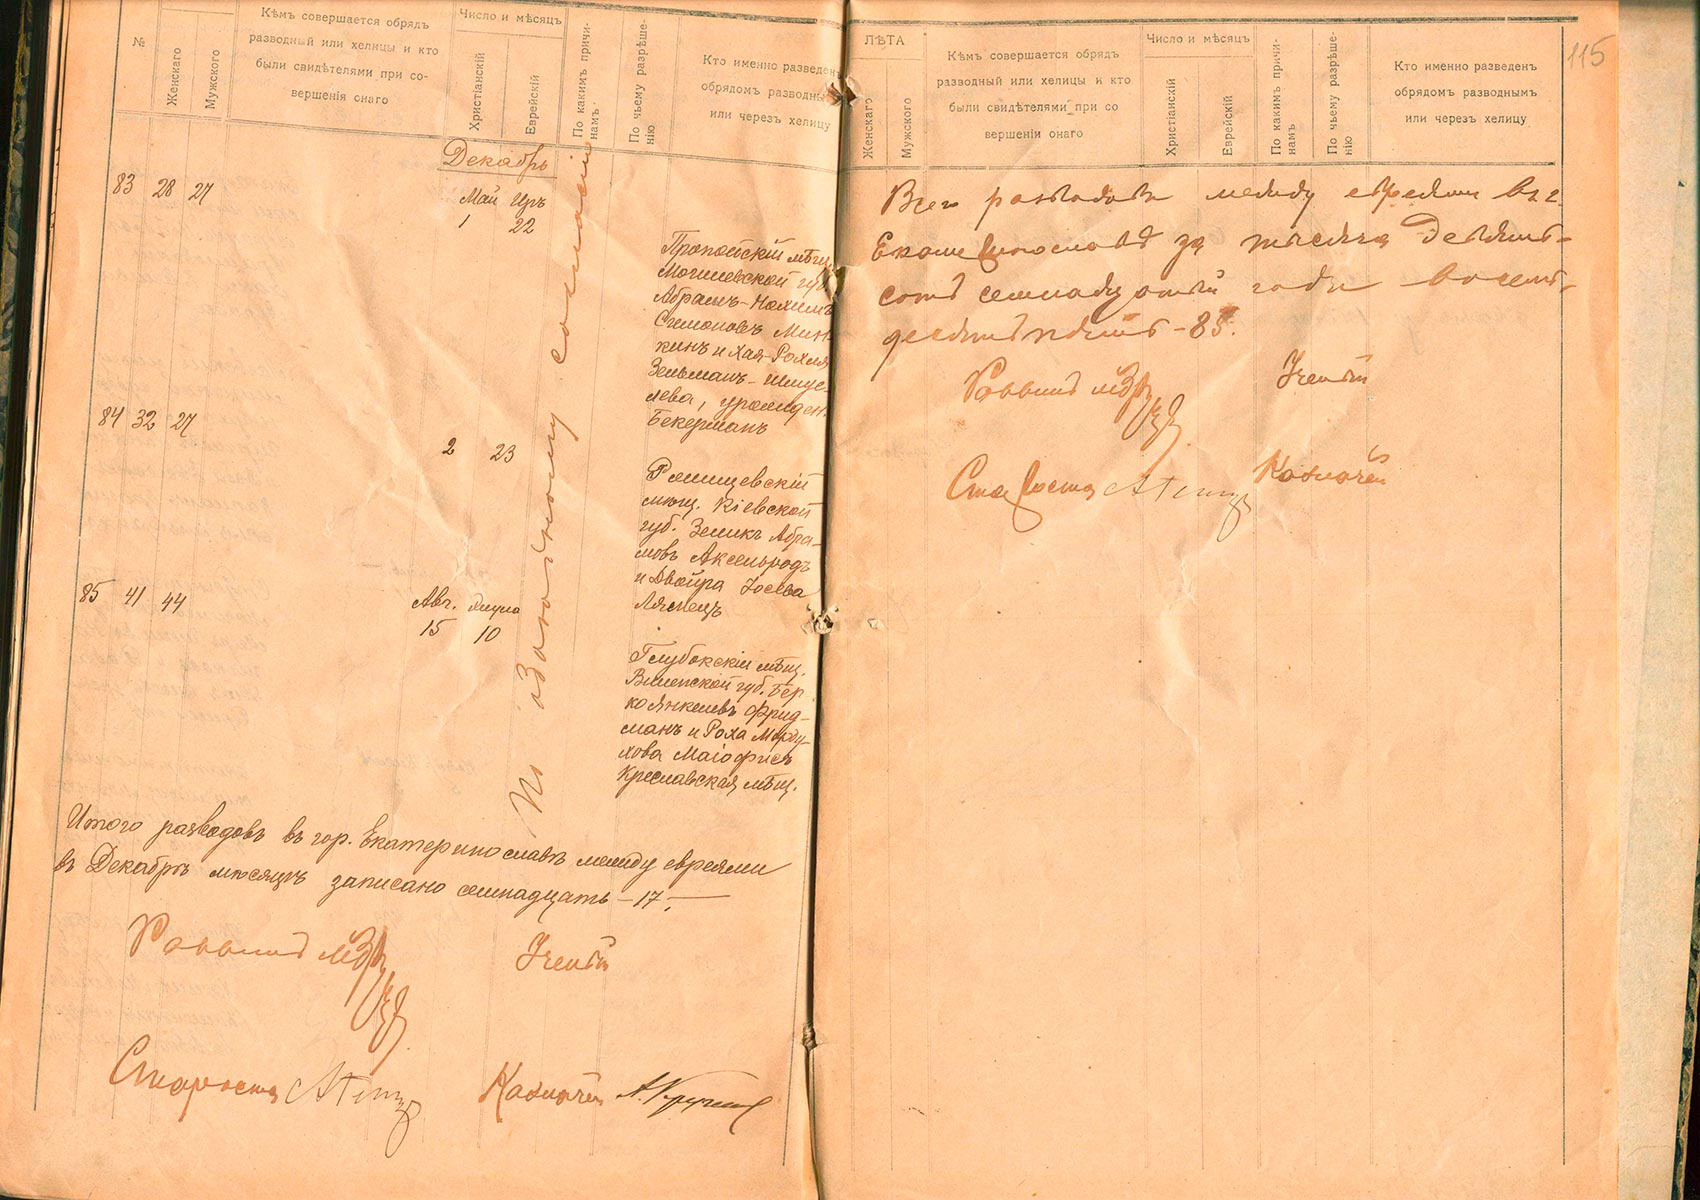 №
Женскаго
Мужского
Кѣмъ совершается обрядъ
разводный или хелицы и кто
были свидѣтелями при со-
вершенія онаго
Число и мѣсяцъ
Христіанскій
Еврейскій
По какимъ причи-
намъ
По чьему разрѣше-
нію
Кто именно разведенъ
обрядомъ разводнымъ
или черезъ хелицу
Декабрь
83 28 27
Май Иръ
1 22
По обоюдному согласію
Пропойскій мѣщ.
Могилевской губ.
Абрамъ-Нохимъ
Симоновъ Мин-
кинъ и Хая-Рохля
Зельманъ-Шмуе-
лева, урожден.
Бекерманъ
84 32 27
2 23
Ржищевскій
мѣщ. Кіевской
губ. Зеликъ Абра-
мовъ Аксельродъ
и Двойра Іосева
Ляснецъ
85 41 44
Авг.
15 10
Глубокскій мѣщ.
Виленской губ. Бер-
ко Янкелевъ Фрид-
манъ и Роха Морду-
хова Маіофисъ
Креславская мѣщ.
Итого разводовъ въ гор. Екатеринославѣ между евреями
въ Декабрѣ мѣсяцѣ записано семнадцать – 17. –
Раввинъ
Ученый
Староста
Казначей
115
ЛѢТА
Женскаго
Мужского
Кѣмъ совершается обрядъ
разводный или хелицы и кто
были свидѣтелями при со
вершеніи онаго
Число и мѣсяцъ
Христіанскій
Еврейскій
По какимъ причи-
намъ
По чьему разрѣше-
нію
Кто именно разведенъ
обрядомъ разводнымъ
или черезъ хелицу
Всего разводовъ между евреями въ г.
Екатеринославѣ за тысяча девять-
сотъ семнадцатый годъ восемь-
десятъ пять – 85.
Раввинъ
Ученый
Староста
Казначей